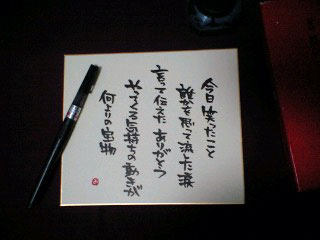 今日笑ったこと
誰かを思って流した涙
言って伝えた ありがとう
やってくる気持ちの動きが
何よりの宝物